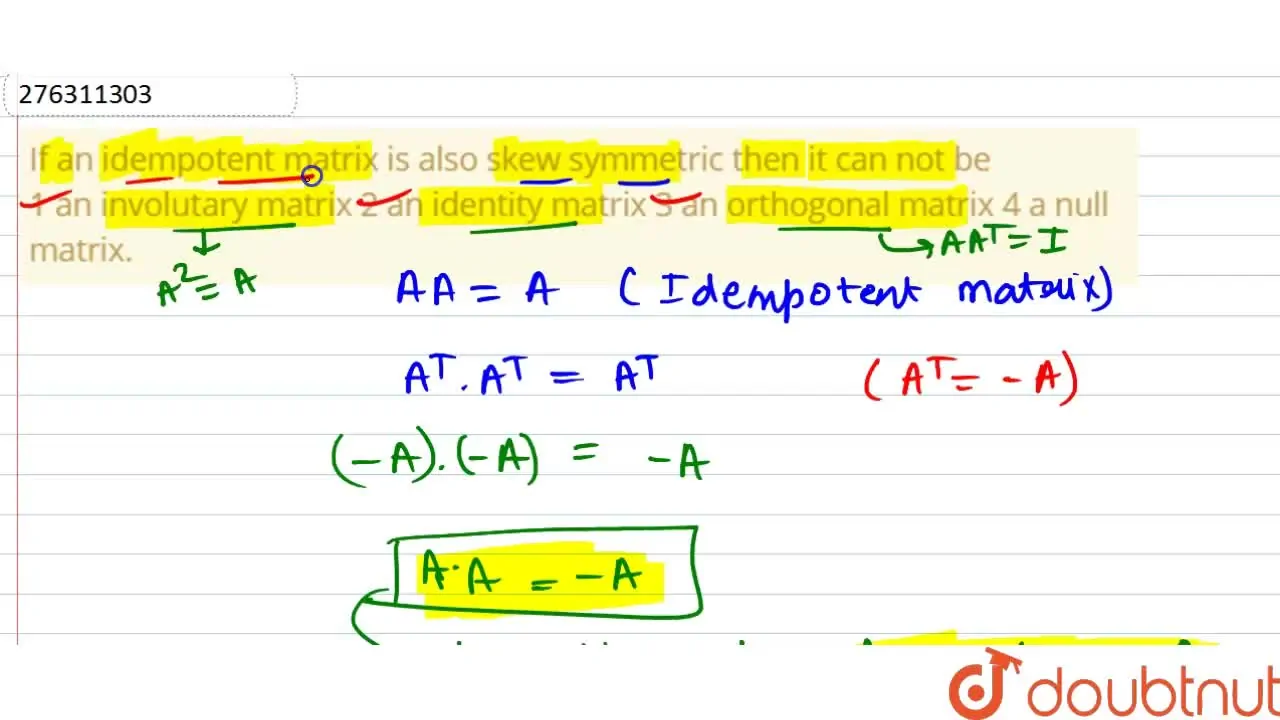 276311303
If an idempotent matrix is also skew symmetric then it can not be
1 an involutary matrix 2 an identity matrix 3 an orthogonal matrix 4 a null
matrix.
AAᵀ = I
A² = A
AA = A (Idempotent matrix)
Aᵀ. Aᵀ = Aᵀ (Aᵀ = -A)
(-A).(-A) = -A
A.A = -A
doubtnut